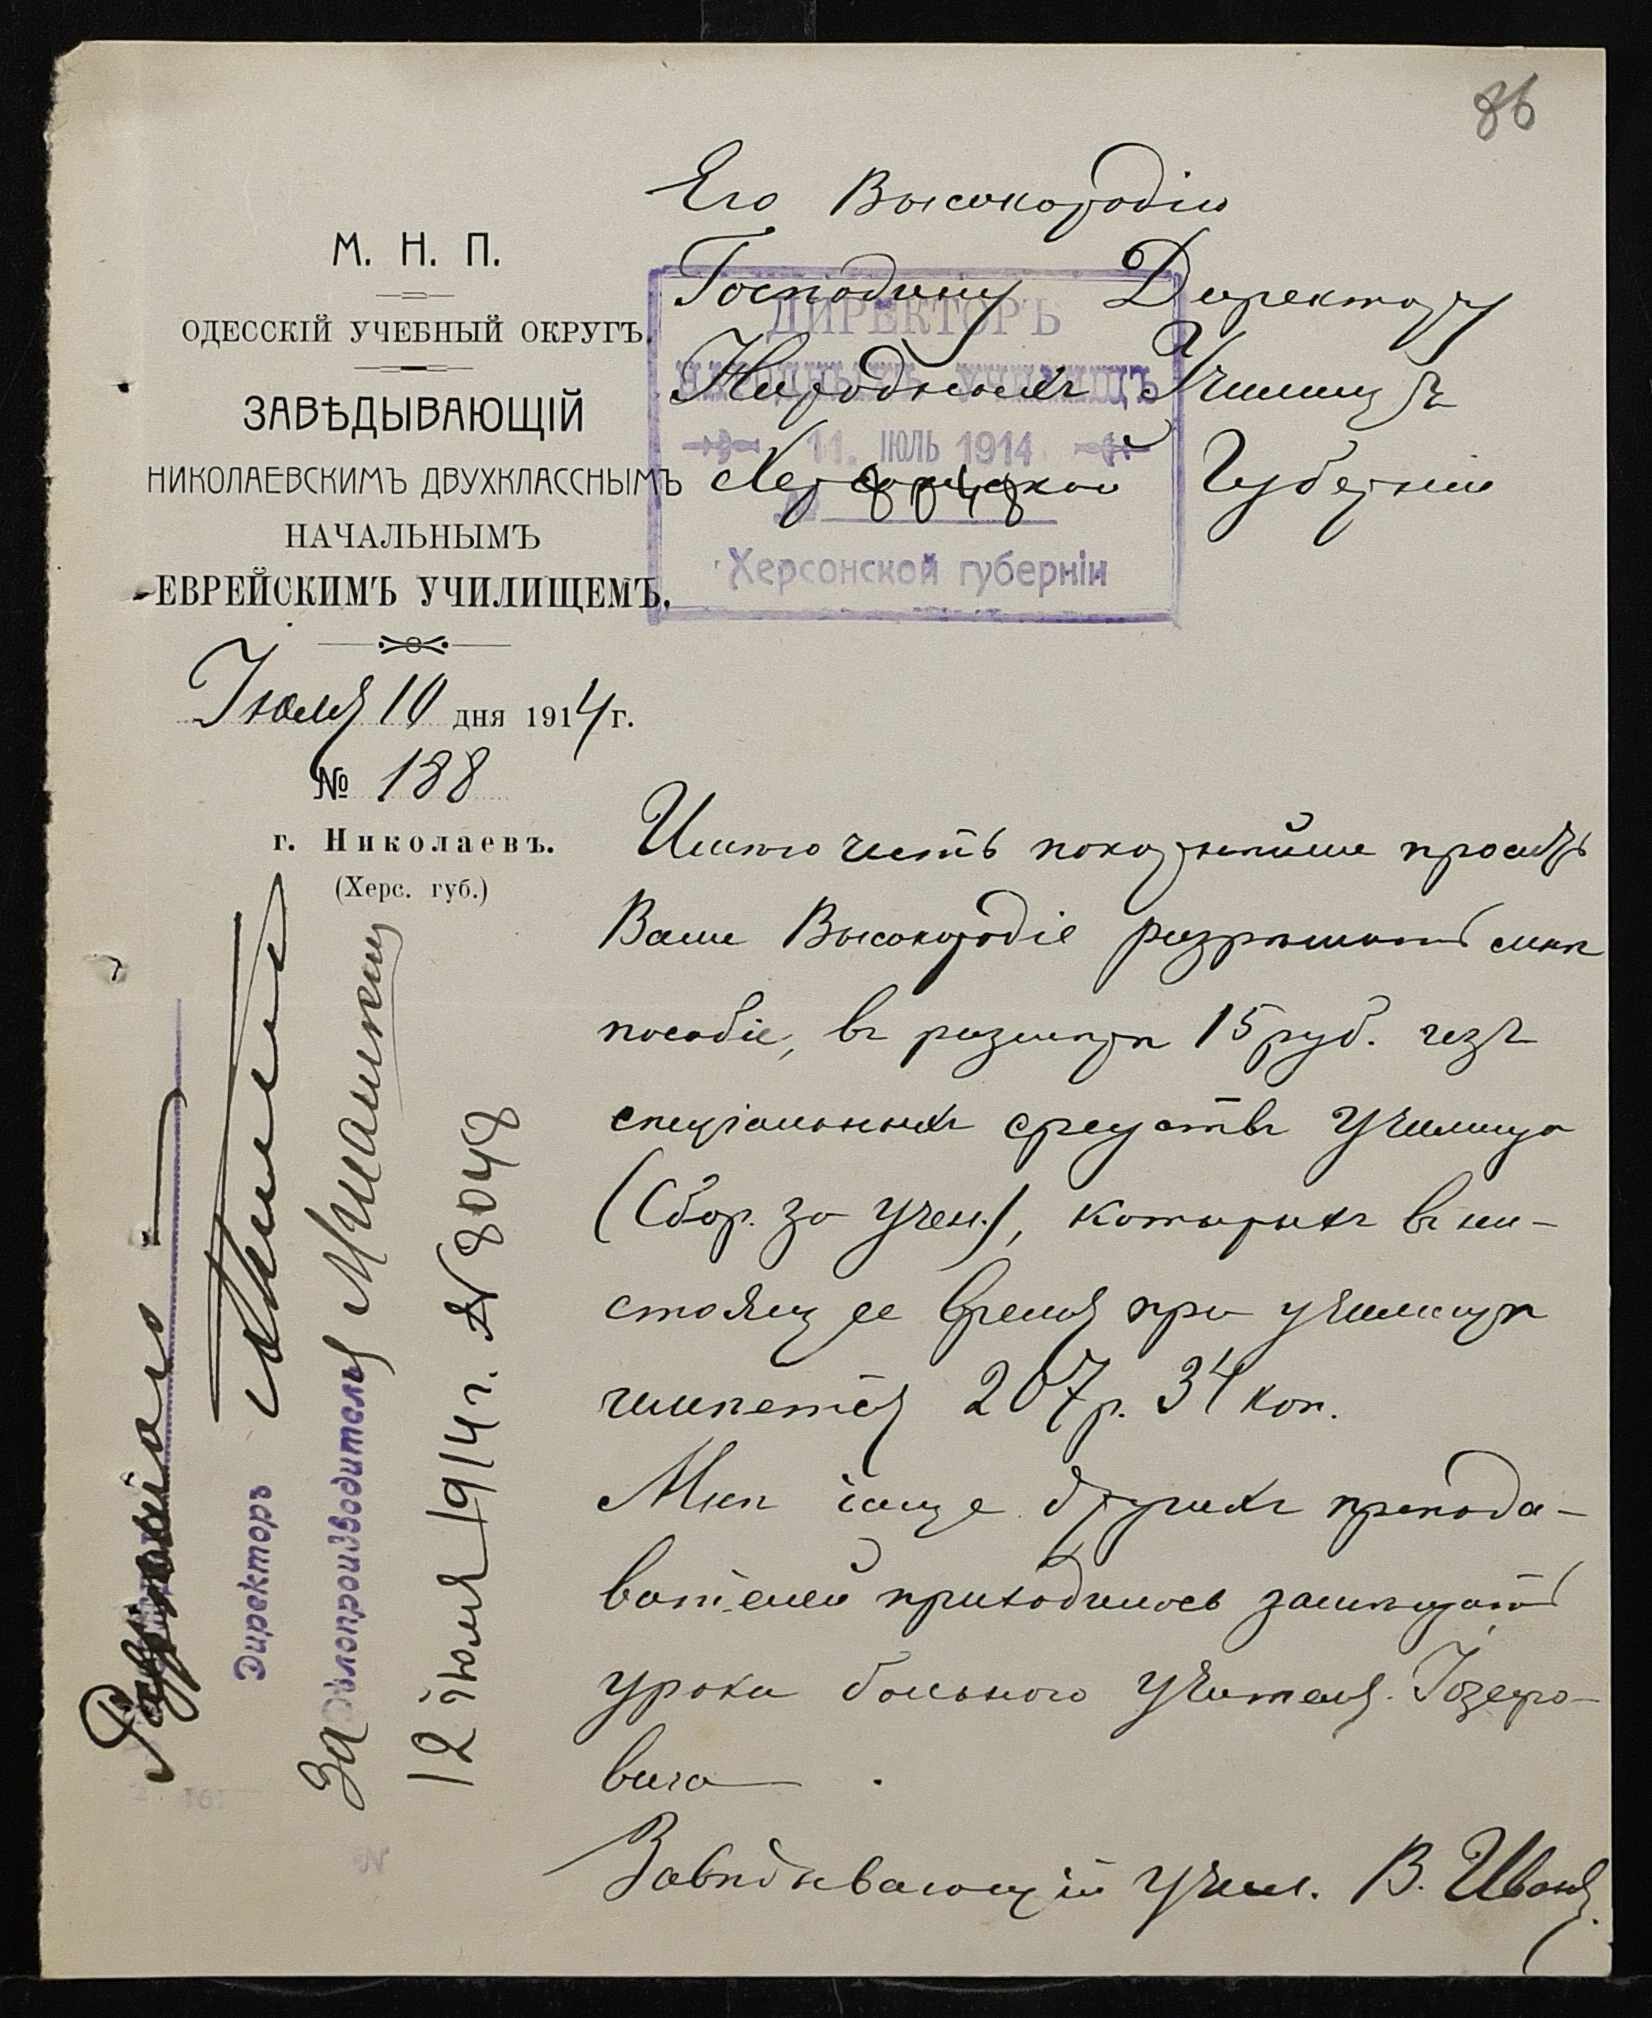 86
Его Высокородію
Господину Директору
Народныхъ Училищъ
Херсонской Губерніи
ДИРЕКТОРЪ
НАРОДНЫХЪ УЧИЛИЩЪ
11. ІЮЛЬ 1914
8048
Херсонской губерніи
М. Н. П.
ОДЕССКІЙ УЧЕБНЫЙ ОКРУГЪ.
ЗАВѢДЫВАЮЩІЙ
НИКОЛАЕВСКИМЪ ДВУХКЛАССНЫМЪ
НАЧАЛЬНЫМЪ
ЕВРЕЙСКИМЪ УЧИЛИЩЕМЪ.
Іюля 10 дня 1914 г.
№ 188
г. Николаевъ.
(Херс. губ.)
Имѣю честь покорнѣйше просить
Ваше Высокородіе разрѣшить мнѣ
пособіе, въ размѣрѣ 15 руб. изъ
спеціальныхъ средствъ училища
(Сбор. за учен.), которыхъ въ на-
стоящее время при училищѣ
имѣется 207 р. 34 коп.
Мнѣ чаще другихъ препода-
вателей приходилось замѣщать
уроки больного учителя Іозефо-
вича.
Завѣдывающій учил. В. Ивон
Разрѣшаю
Директоръ
За Дѣлопроизводителя
12 іюля 1914 г. № 8048